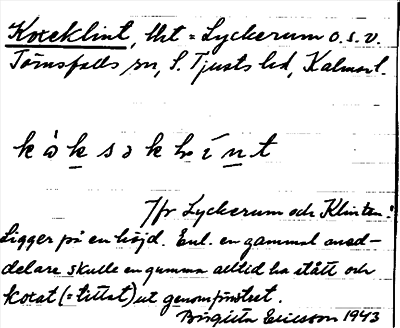 Koxeklint, lht = Lyckerum o.s.v.
Törnsfalls sn, S. Tjusts hd, Kalmar l.
k à k s ə k l í n t
Jfr Lyckerum och Klinten.
Ligger på en höjd. Enl. en gammal med-
delare skulle en gumma alltid ha stått och
koxat (= tittat) ut genom fönstret.
Birgitta Ericsson 1943